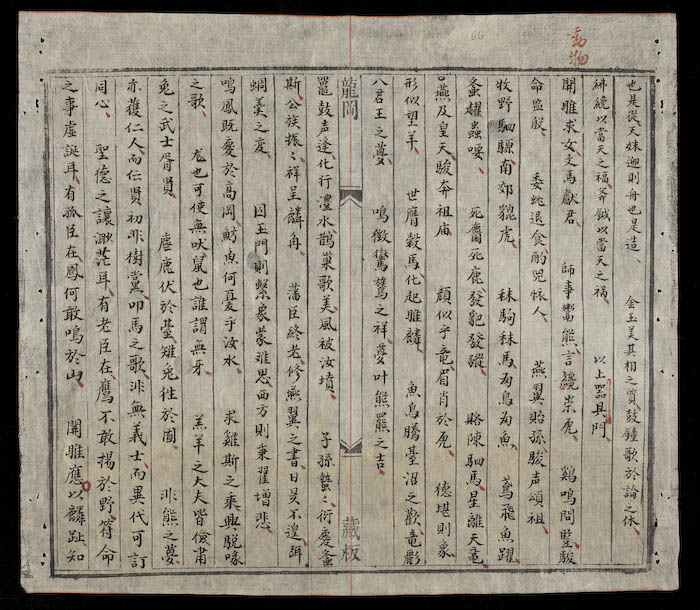 動物
66
也是從天妹迎則舟也是造、 金玉美其相之質鼓鐘歌於論之休、
紼繞以當天之福、斧鉞以當天之禍、 以上器具門
關雎求女文馬獻君、 師事鬻熊、言纔崇虎、 鷄鳴問竪駿
命監殷、 委蛇退食酌兕懷人、 燕翼貽孫駿声頌祖、
牧野駟騵南郊貔虎、 秣駒秣馬為烏為魚、 鳶飛魚躍
螽耀蟲喓、 死麕死鹿、發豝發豵、 賂陳駟馬星離天竜
燕及皇天駿奔祖庙 顏似乎竜、眉肖於虎、 德堪則象
形似望羊、 世膺穀馬化起雎麟、 魚鳥騰臺沼之歡、竜彪
八君王之夢、 鳴徵鸑鷟之祥、夢叶熊羆之吉、
龍岡 藏板
鼉鼓声逢化行灃水鵲巢歌美風被汝墳、 子孫蟄〻衍慶螽
斯公族振〻祥呈麟角、 藩臣終老修燕翼之書、日昃不遑弭
蜩羹之変 因玉門則繫象蒙难思西方則秉翟增悲、
鳴鳳既慶於高岡魴魚何憂乎汝水 求雞斯之乘興駾喙
之歌、 尨也可使無吠鼠也誰謂無牙 羔羊之大夫皆儉肅
兔之武士胥賢、 麀鹿伏於臺雉兔徃於囿 非熊之夢
亦獲仁人而仁賢初非樹黨、叩馬之歌非無義士而異代可訂
同心、 聖德之讓渺茫耳有老臣在、鷹不敢揚於野符命
之事虛誕耳有孤臣在鳳何敢鳴於山、 關雎應以麟趾知